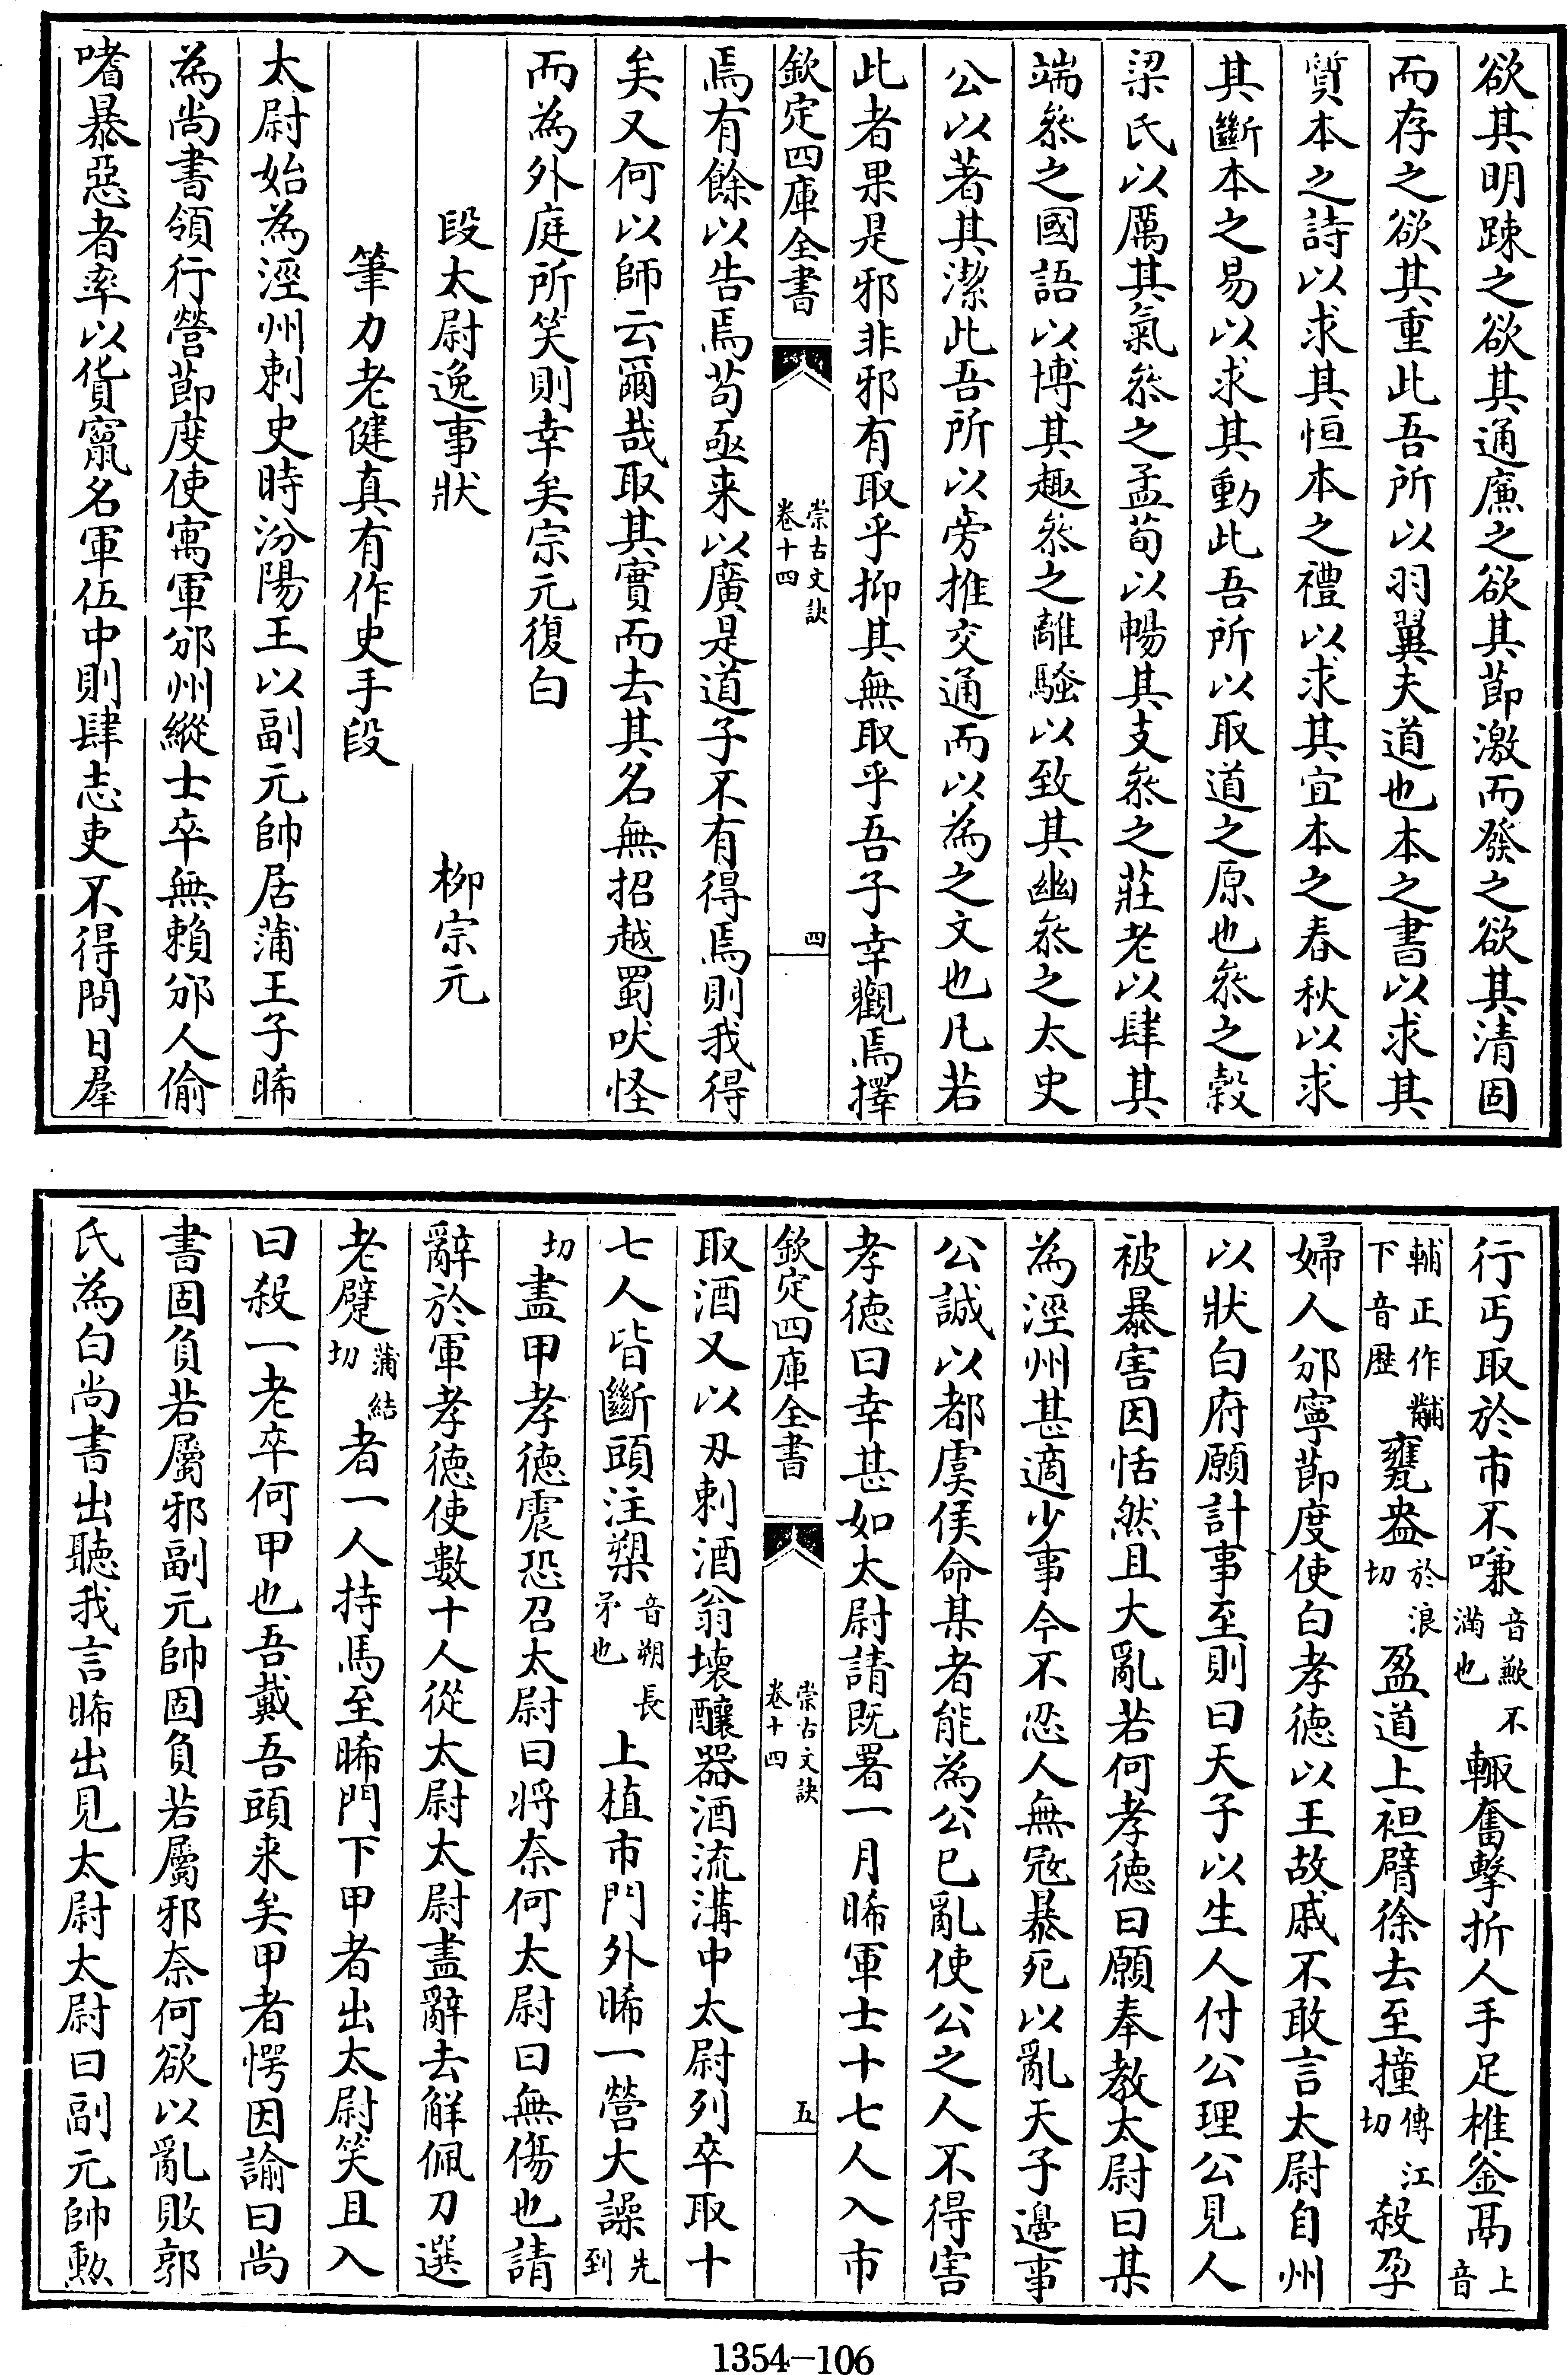 欲其明疎之欲其通廉之欲其節激而發之欲其清固
而存之欲其重此吾所以羽翼夫道也本之書以求其
質本之詩以求其恒本之禮以求其宜本之春秋以求
其斷本之易以求其動此吾所以取道之原也叅之穀
梁氏以厲其氣叅之孟荀以暢其支叅之莊老以肆其
端叅之國語以博其趣叅之離騷以致其幽叅之太史
公以著其潔此吾所以旁推交通而以為之文也凡若
此者果是邪非邪有取乎抑其無取乎吾子幸觀焉擇
欽定四庫全書
崇古文訣
卷十四
四
焉有餘以告焉苟亟来以廣是道子不有得焉則我得
矣又何以師云爾哉取其實而去其名無招越蜀吠怪
而為外庭所笑則幸矣宗元復白
段太尉逸事狀 柳宗元
筆力老健真有作史手段
太尉始為涇州刺史時汾陽王以副元帥居蒲王子晞
為尚書領行營節度使寓軍邠州縱士卒無賴邠人偷
嗜暴惡者率以貨竄名軍伍中則肆志吏不得問日羣
行丐取於市不嗛音歉不滿也輒奮擊折人手足椎釜鬲上音
輔正作鬴下音歴甕盎於浪切盈道上袒臂徐去至撞傳江切殺孕
婦人邠寧節度使白孝徳以王故戚不敢言太尉自州
以狀白府願計事至則曰天子以生人付公理公見人
被暴害因恬然且大亂若何孝徳曰願奉教太尉曰某
為涇州甚適少事今不忍人無冦暴死以亂天子邉事
公誠以都虞侯命某者能為公已亂使公之人不得害
孝徳曰幸甚如太尉請既署一月晞軍士十七人入市
欽定四庫全書
崇古文訣
卷十四
五
取酒又以刃刺酒翁壊釀器酒流溝中太尉列卒取十
七人皆斷頭注槊音朔長矛也上植市門外晞一營大譟先到
切盡甲孝徳震恐召太尉曰将奈何太尉曰無傷也請
辭於軍孝徳使數十人從太尉太尉盡辭去解佩刀選
老躄蒲結切者一人持馬至晞門下甲者出太尉笑且入
曰殺一老卒何甲也吾戴吾頭来矣甲者愕因諭曰尚
書固負若屬邪副元帥固負若屬邪奈何欲以亂敗郭
氏為白尚書出聽我言晞出見太尉太尉曰副元帥勲
1354-106